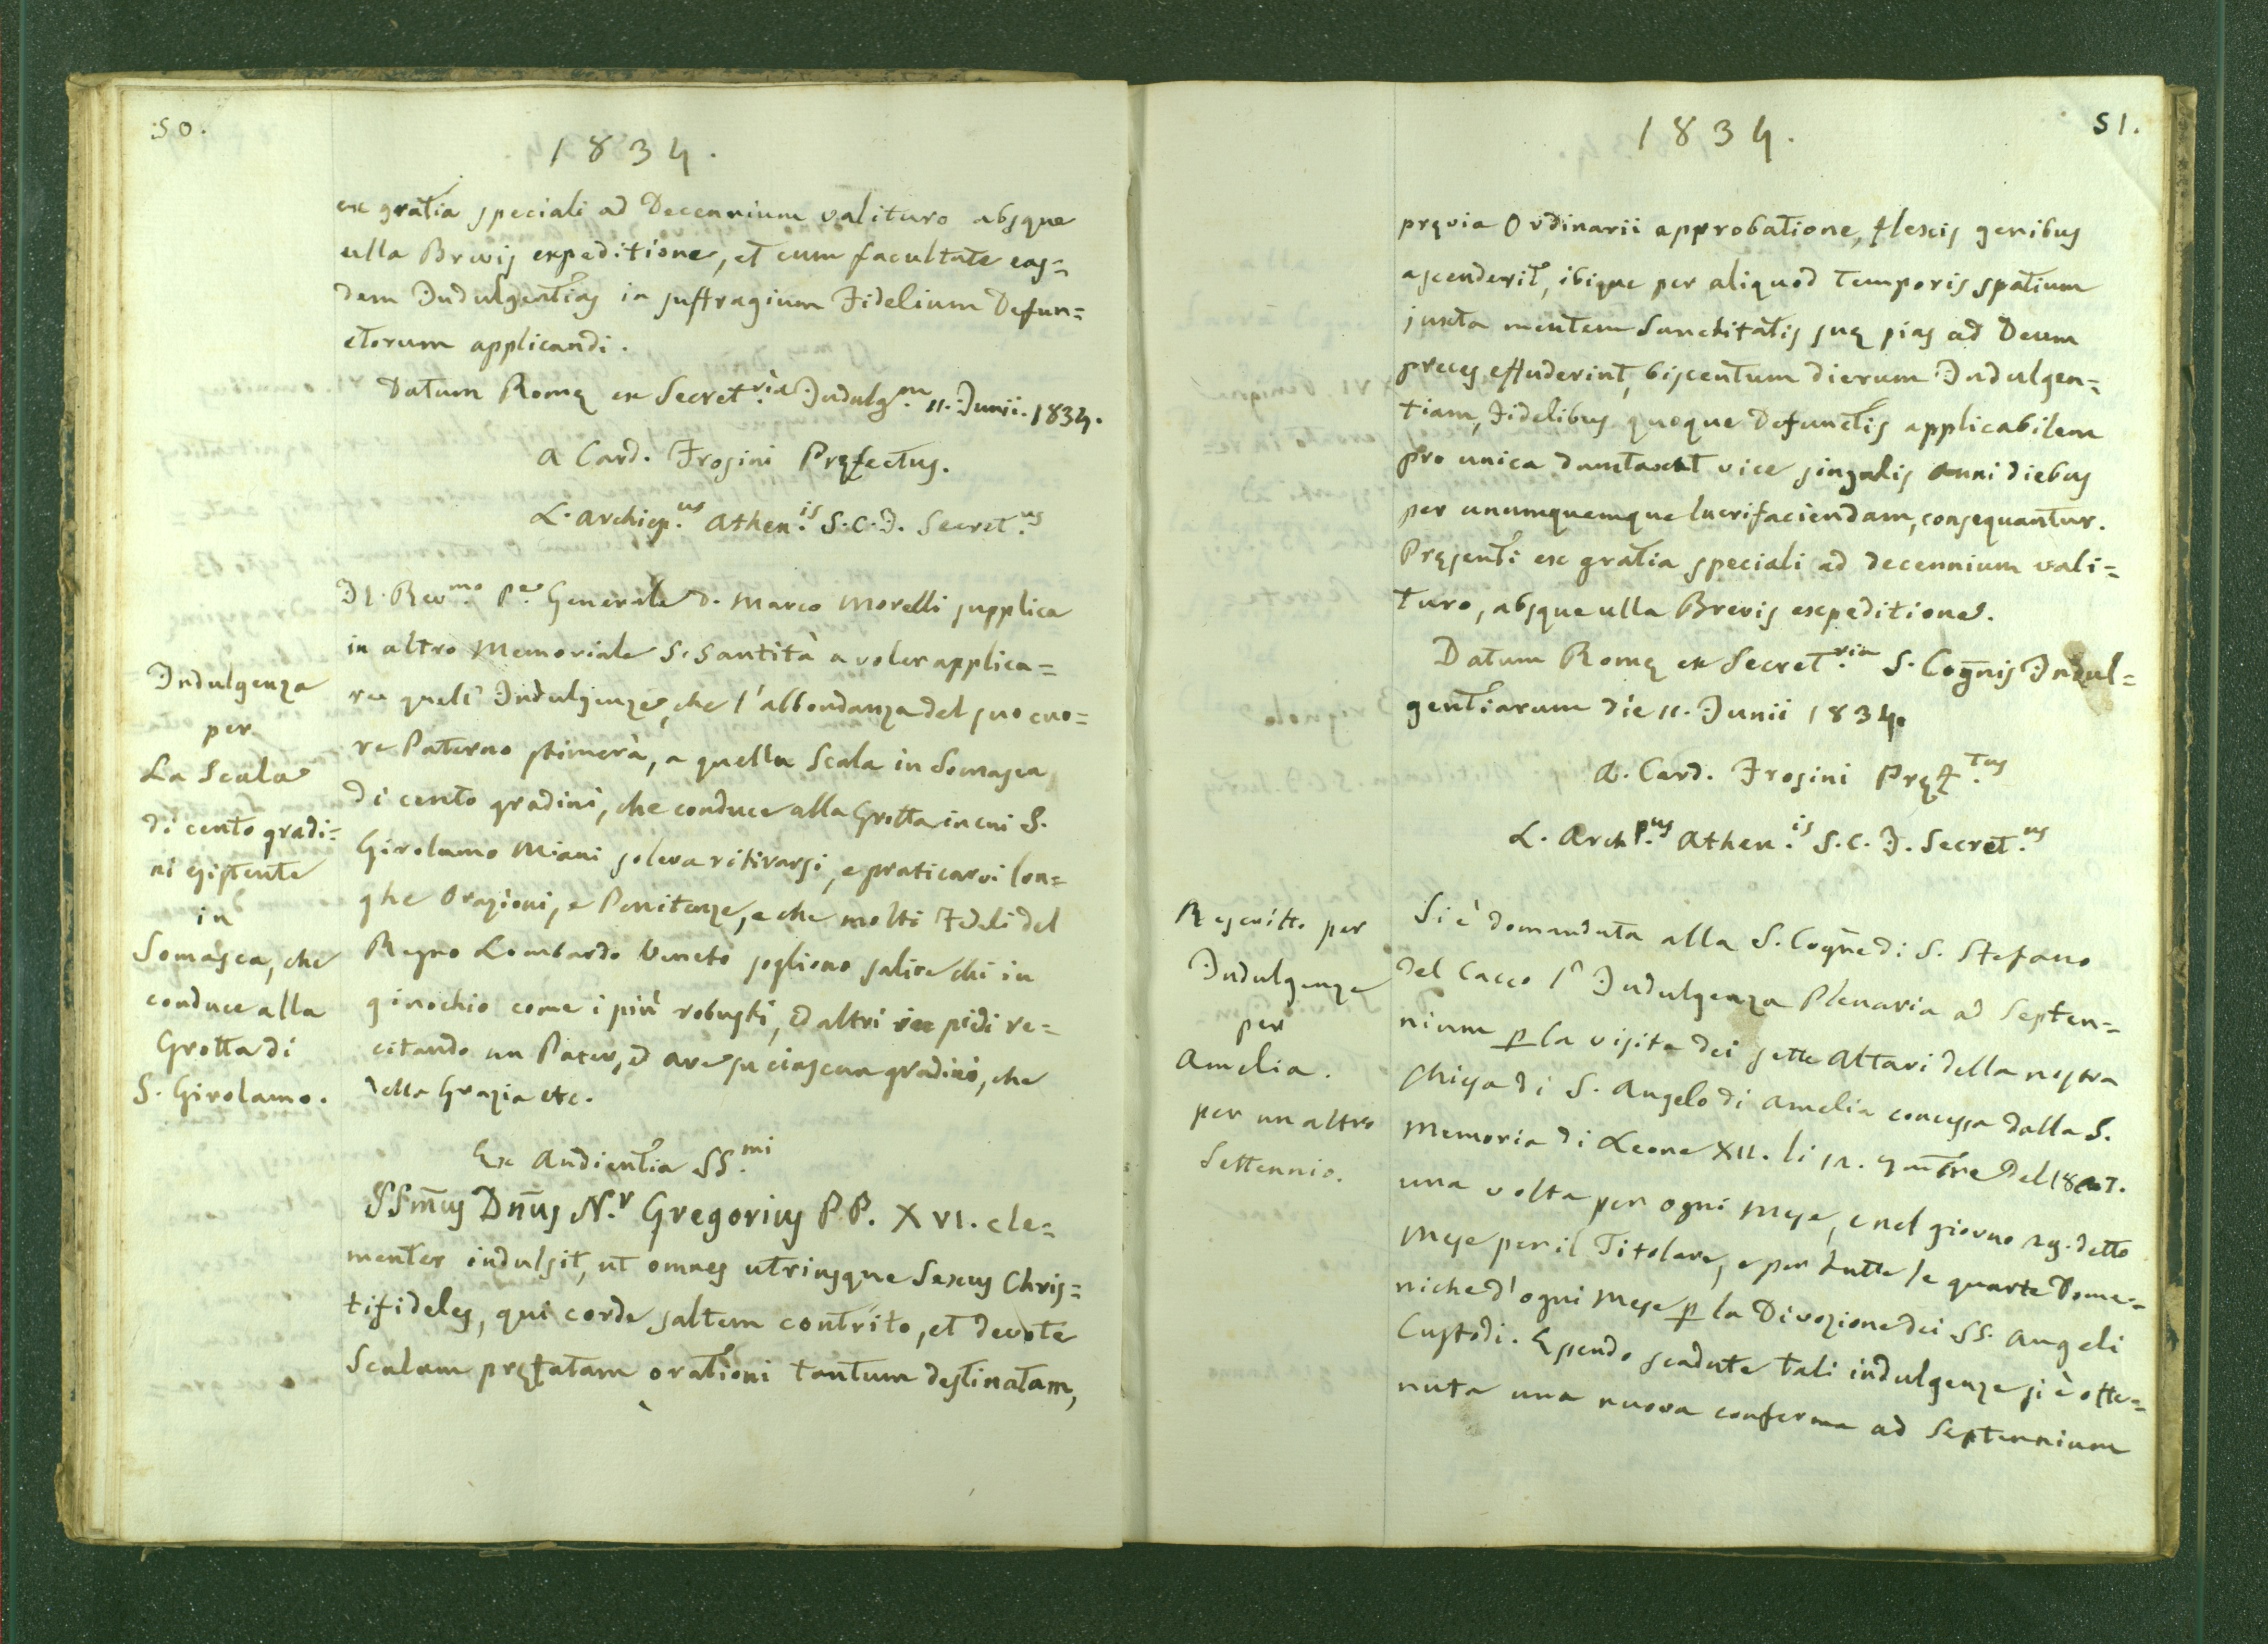 50.
1834.
ex gratia speciali ad Decennium valituro absque
ulla Brevis expeditione, et cum facultate eas=
dem Indulgentias in suffragium Fidelium Defun=
ctorum applicandi.
Datum Romę ex Secret.ria Indulg.m 11. Junii. 1834.
A Card. Frosini Pręfectus.
L. Archiep.us Athen.is S. C. I. Secret.us
Il Rev.mo Pe Generale D. Marco Morelli supplica
in altro Memoriale S. Santità a voler applica=
re quell' Indulgenze, che l'abbondanza del suo cuo=
re Paterno stimerà, a quella Scala in Somasca
di cento gradini, che conduce alla Grotta in cui S.
Girolamo Miani soleva ritirarsi, e praticarvi lon=
ghe Orazioni, e Penitenze, e che molti Fedeli del
Regno Lombardo Veneto sogliono salire chi in
ginochio come i più robusti, ed altri in piedi re=
citando un Pater, ed Ave su ciascun gradino, che
della Grazia etc.
Indulgenza
per
La Scala
di cento gradi=
ni esistente
in
Somasca, che
conduce alla
Grotta di
S. Girolamo.
Ex Audientia SS.mi
SSm̄us Dn̄us N.r Gregorius P P. XVI. cle=
menter indulsit, ut omnes utriusque Sexus Chris=
tifideles, qui corde saltem contrito, et devote
Scalam pręfatam orationi tantum destinatam,
51.
1834.
pręvia Ordinarii approbatione, flexis genibus
ascenderit, ibique per aliquod temporis spatium
juxta mentem Sanctitatis suę pias ad Deum
preces effuderint, biscentum dierum Indulgen=
tiam, Fidelibus quoque Defunctis applicabilem
pro unica dumtaxat vice singulis anni diebus
per unumquemque lucrifaciendam, consequantur.
Pręsenti ex gratia speciali ad decennium vali=
turo, absque ulla Brevis expeditione.
Datum Romę ex Secret.ria S. Cogn̄is Indul=
gentiarum die 11. Junii 1834.
A. Card. Frosini Pręf.tus
L. Archp.us Athen.is S. C. I. Secret.us
Rescritto per
Indulgenze
per
Amelia.
per un altro
Settennio.
Si è domandata alla S. Cogn̄e di S. Stefano
del Cacco l' Indulgenza Plenaria ad Septen=
nium p la visita dei sette Altari della nostra
Chiesa di S. Angelo di Amelia concessa dalla S.
Memoria di Leone XII. li 12. 7mbre del 1827.
una volta per ogni Mese, e nel giorno 29. detto
Mese per il Titolare, e per tutte le quarte Dome=
niche d'ogni Mese p la Divozione dei SS. Angeli
Custodi. Essendo scadute tali indulgenze si è otte=
nuta una nuova conferma ad Septennium